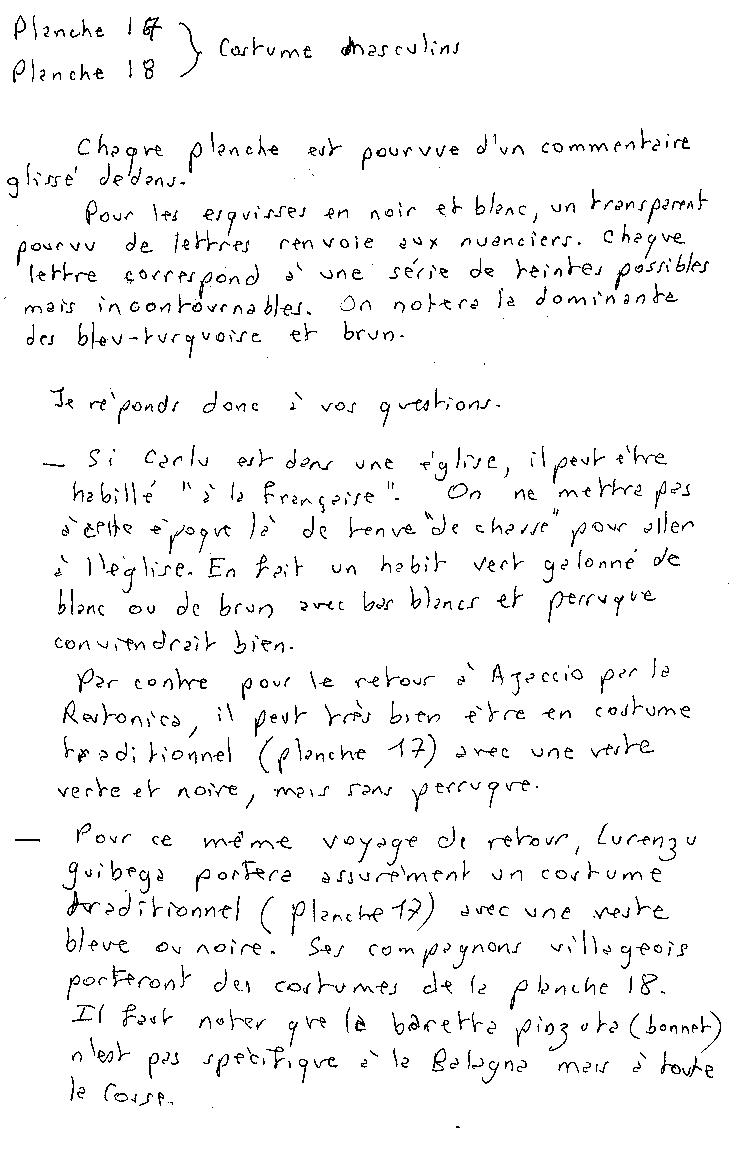 Planche 17 } Costume masculins
Planche 18
Chaque planche est pourvue d'un commentaire
glissé dedans.
Pour les esquisses en noir et blanc, un transparent
pourvu de lettres renvoie aux nuanciers. Chaque
lettre correspond à une série de teintes possibles
mais incontournables. On notera la dominante
des bleu-turquoise et brun.
Je réponds donc à vos questions.
— Si Carlu est dans une église, il peut être
habillé "à la française". On ne mettra pas
à cette époque là de tenue "de chasse" pour aller
à l'église. En fait un habit vert galonné de
blanc ou de brun avec bas blancs et perruque
conviendrait bien.
Par contre pour le retour à Ajaccio par la
Restonica, il peut très bien être en costume
traditionnel (planche 17) avec une veste
verte et noire, mais sans perruque.
— Pour ce même voyage de retour, Lurenzu
guibega portera assurément un costume
traditionnel (planche 17) avec une veste
bleue ou noire. Ses compagnons villageois
porteront des costumes de la planche 18.
Il faut noter que la baretta pinzuta (bonnet)
n'est pas spécifique à la Balagna mais à toute
la Corse.